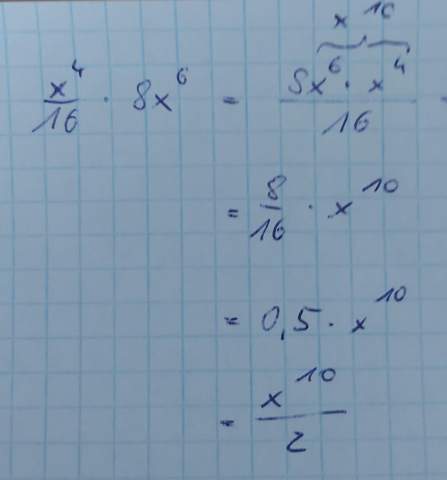 x^10
x^4/16 · 8x^6 = 8x^6 · x^4/16 =
= 8/16 · x^10
= 0,5 · x^10
= x^10/2